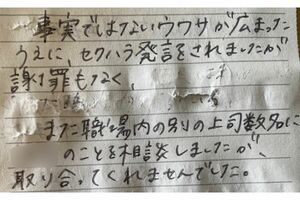 事実ではないウワサが広まった
うえに、セクハラ発言をされましたが
謝罪もなく、
また職場内の別の上司数名に
のことを相談しましたが、
取り合ってくれませんでした。